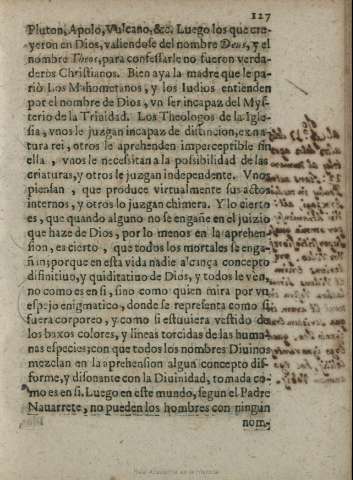 127
Pluton, Apolo, Vulcano, &c. Luego los que cre-
yeron en Dios, valiendose del nombre Deus, y el
nombre Theos, para confessarle no fueron verda-
deros Christianos. Bien aya la madre que le pa-
riò Los Mahometanos, y los Iudios entienden
por el nombre de Dios, vn ser incapaz del Mys-
terio de la Trinidad. Los Theologos de la Igle-
sia, vnos le juzgan incapaz de distincion, ex na-
tura rei, otros le aprehenden imperceptible sin
ella, vnos le necesitan a la possibilidad de las
criaturas, y otros le juzgan independente. Vnos
piensan, que produce virtualmente sus actos
internos, y otros lo juzgan chimera. Y lo cierto
es, que quando alguno no se engañe en el juizio
que haze de Dios, por lo menos en la aprehen-
sion, es cierto, que todos los mortales se enga-
ñan porque en esta vida nadie alcança concepto
difinitiuo, y quiditatino de Dios, y todos le ven,
no como es en si, sino como quien mira por vn
espejo enigmatico, donde se representa como si
fuera corporeo, y como si estuuiera vestido de
los baxos colores, y lineas torcidas de las huma-
nas especies; con que todos los nombres Diuinos
mezclan en la aprehension algun concepto dis-
forme, y disonante con la Diuinidad, tomada co-
mo es en si. Luego en este mundo, segun el Padre
Nauarrete, no pueden los hombres con ningun
nom-
Real Academia de la Historia